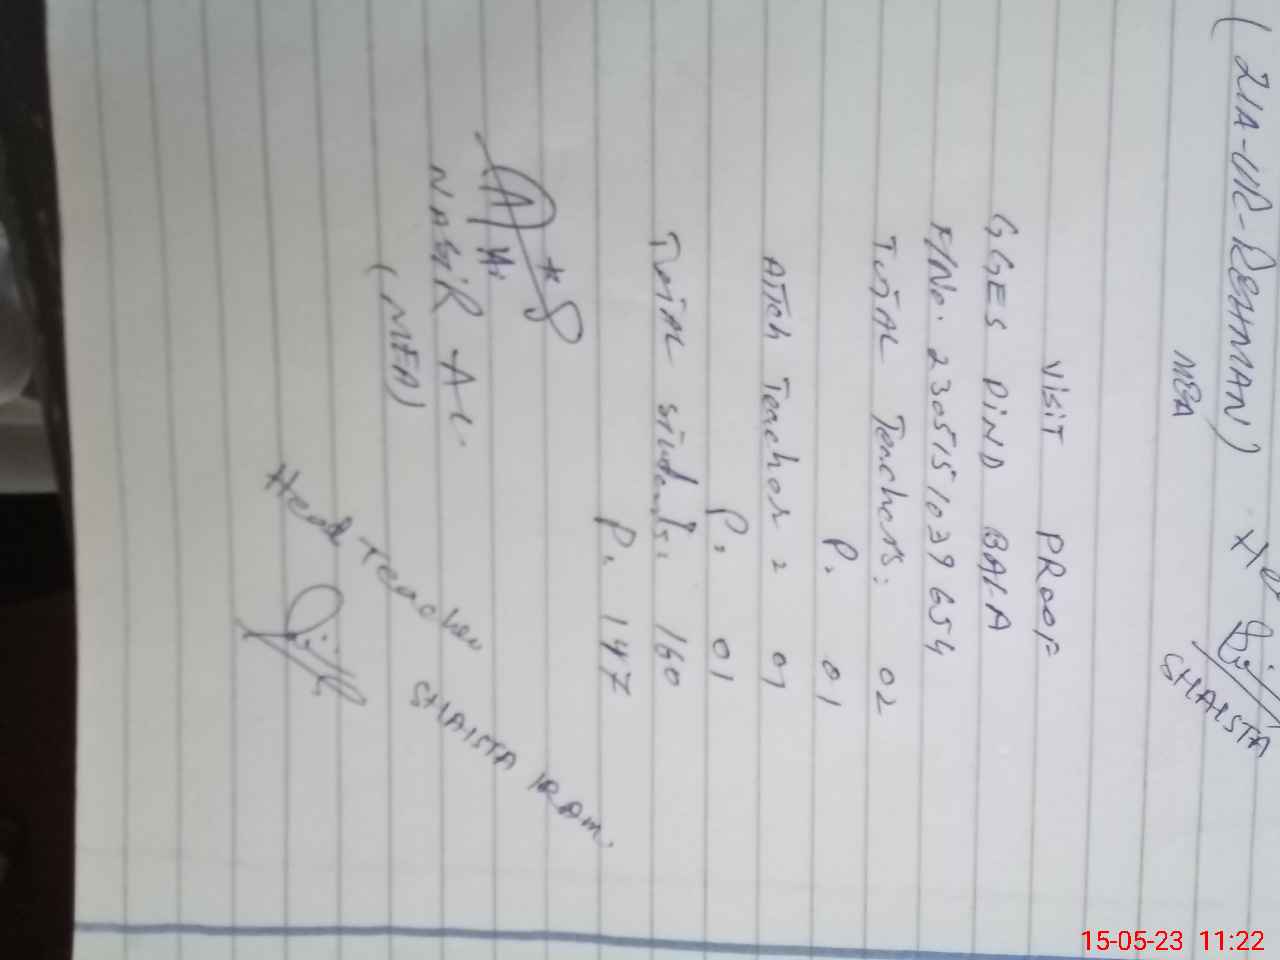 (ZIA-UR-REHMAN)
MEA
SHAISTA
VISIT PROOF
GGES PIND BALA
F/No. 2305151039654
TOTAL Teachers: 02
P. 01
ATTch Teacher = 01
P. 01
TOTAL students: 160
P. 147
NASIR Ali
(MEA)
Head Teacher
SHAISTA IRAM.
15-05-23 11:22